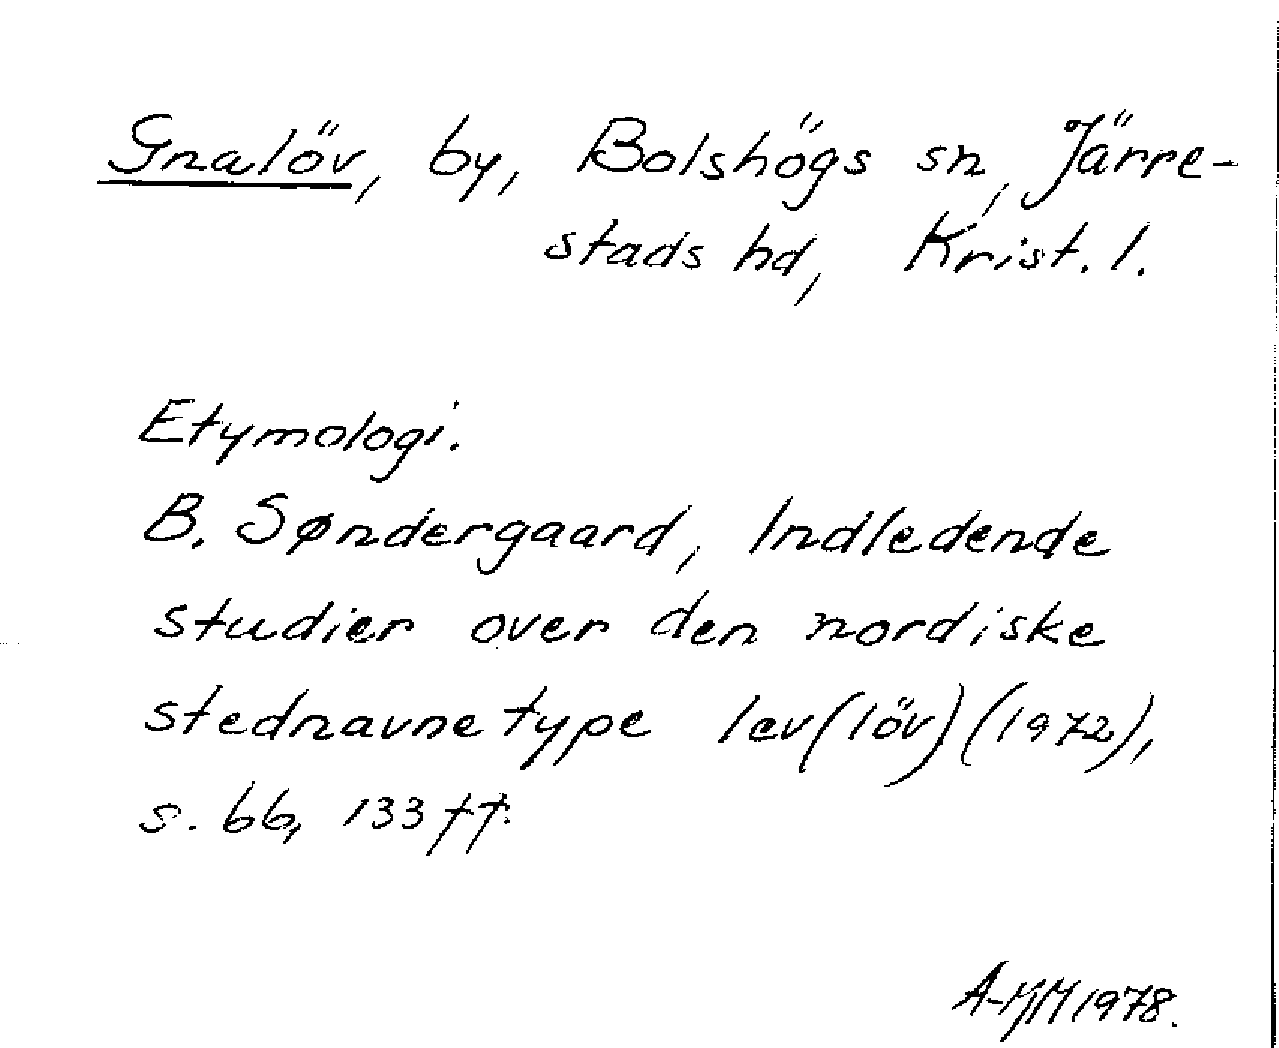 Gnalöv, by, Bolshögs sn, Järre-
stads hd, Krist. l.
Etymologi.
B. Søndergaard, Indledende
studier over den nordiske
stednavnetype lev(löv)(1972),
s. 66, 133 ff.
1978.